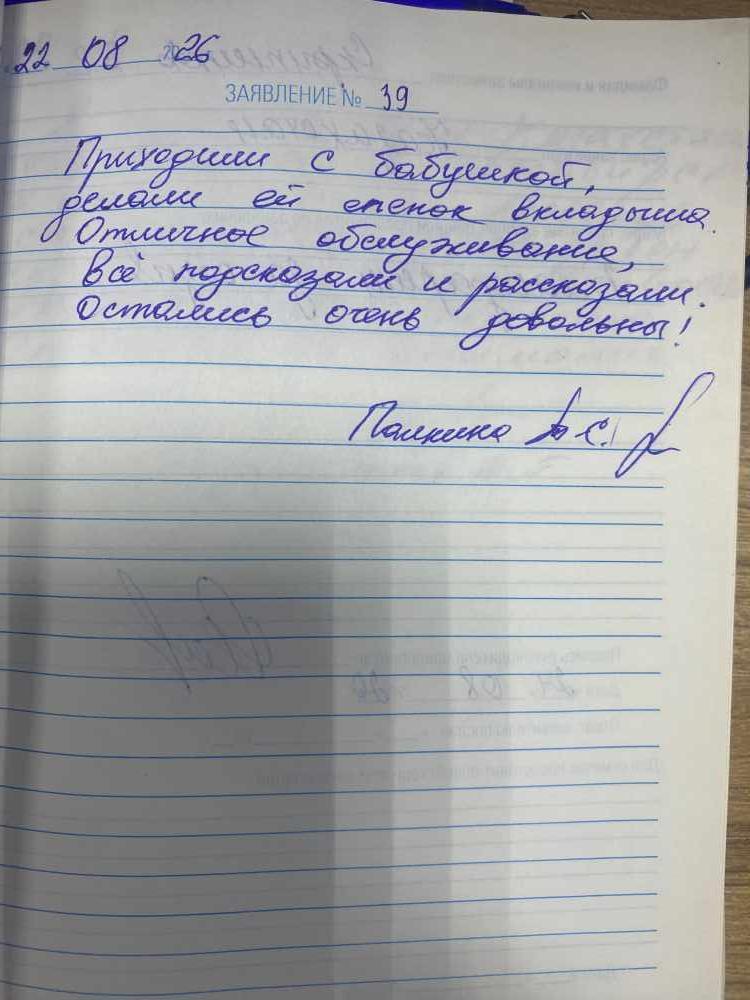 22 08 2026
ЗАЯВЛЕНИЕ № 39
Приходили с бабушкой,
делали ей слепок вкладыша.
Отличное обслуживание,
всё подсказали и рассказали.
Остались очень довольны!
Палкина А.С.